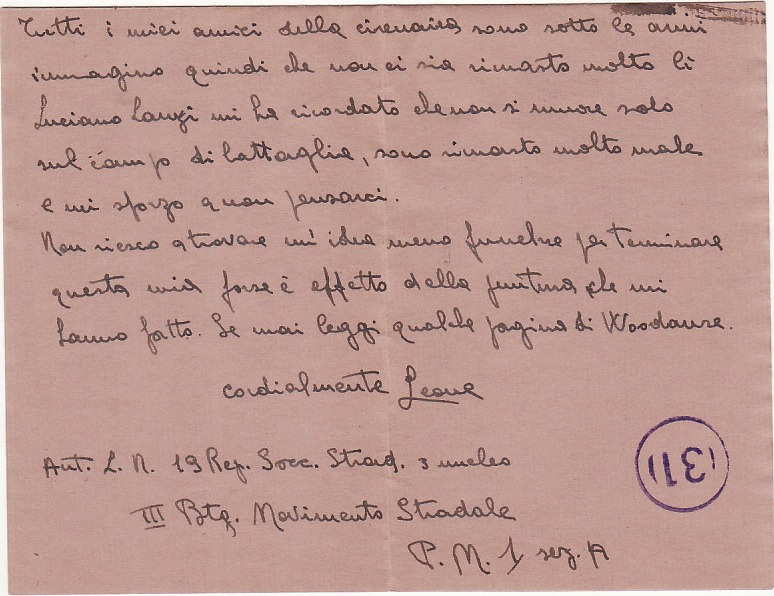 Tutti i miei amici della cirenaica sono sotto le armi
immagino quindi che non ci sia rimasto molto lì
Luciano mi ha ricordato che non si muore solo
sul campo di battaglia, sono rimasto molto male
e mi sforzo a non pensarci.
Non riesco a trovare un'idea meno funebre per terminare
questa mia forse è effetto della puntura che mi
hanno fatto. Se mai leggi qualche pagina di
cordialmente Leone
Aut. L. N. 19 Rep. Socc. Strad. 3 nucleo
III Btg. Movimento Stradale
P. M. 1 sez. A
(31)